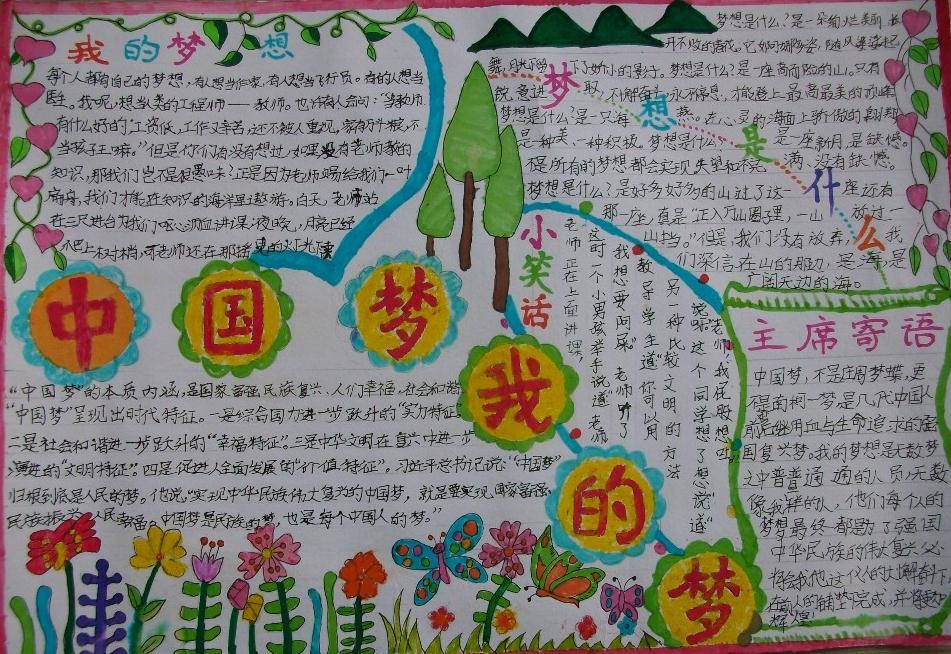 我的梦想
每个人都有自己的梦想，有人想当作家，有人想当飞行员。有的人想当
医生。我呢，想当人类的工程师——教师。也许有人会问：“当教师
有什么好的？工资低，工作又辛苦，还不被人重视，家有万千粮，不
当孩子王嘛。”但是你们有没有想过，如果没有老师教的
知识，那我们岂不是很愚味？正是因为老师赐给我们一叶
扁舟，我们才能在知识的海洋里遨游。白天，老师站
在三尺讲台为我们呕心沥血讲课，夜晚，月亮已经
上树梢，老师还在那摇曳的灯光
梦想是什么
梦想是什么？是一朵绚烂美丽，长
开不败的
梦想是什么？是一座高而险的山。只有
不解奋斗，永不停息，才能登上最高最美的顶峰
梦想是什么？是一只海
在心灵的海面上
是一种美，一种积极，梦想是什么？是一座新月，是缺憾。
不是所有的梦想都会实现，失望和
满，没有缺憾。
梦想是什么？是好多好多的山过了这一座还有
那一座，真是“正入万山圈子里，一山放过一
山拦。”但是，我们没有放弃，我
们深信在山的那边，是海，是
广阔无边的海。
小笑话
老师正在上面讲课，
这时一个小男孩举手说道“老师
我想要阿屎”老师听了
教导学生道“你可以用
另一种比较文明的方法
说呀”这个同学想了想说道
“老师：我屁股想吐”
中国梦
我的梦
“中国梦”的本质内涵，是国家富强，民族复兴，人们幸福，社会和谐
“中国梦”呈现出时代特征。一是综合国力进一步跃升的“实力特征”
二是社会和谐进一步跃升的“幸福特征”。三是中华文明在复兴中进一步
演进的“文明特征”。四是促进人全面发展的“价值特征”。习近平总书记说：“中国梦”
归根到底是人民的梦。他说“实现中华民族伟大复兴的中国梦，就是要实现国家富强，
民族振兴，人民幸福。中国梦是民族的梦，也是每个中国人的梦。”
主席寄语
中国梦，不是庄周梦蝶，更
不是南柯一梦是几代中国人
前赴后继用血与生命追求的强
国复兴梦。我的梦想是无数梦
文中普普通通的人员，无数
像我样的人，他们每似的
梦想最终都
强国
中华民族的伟大复兴